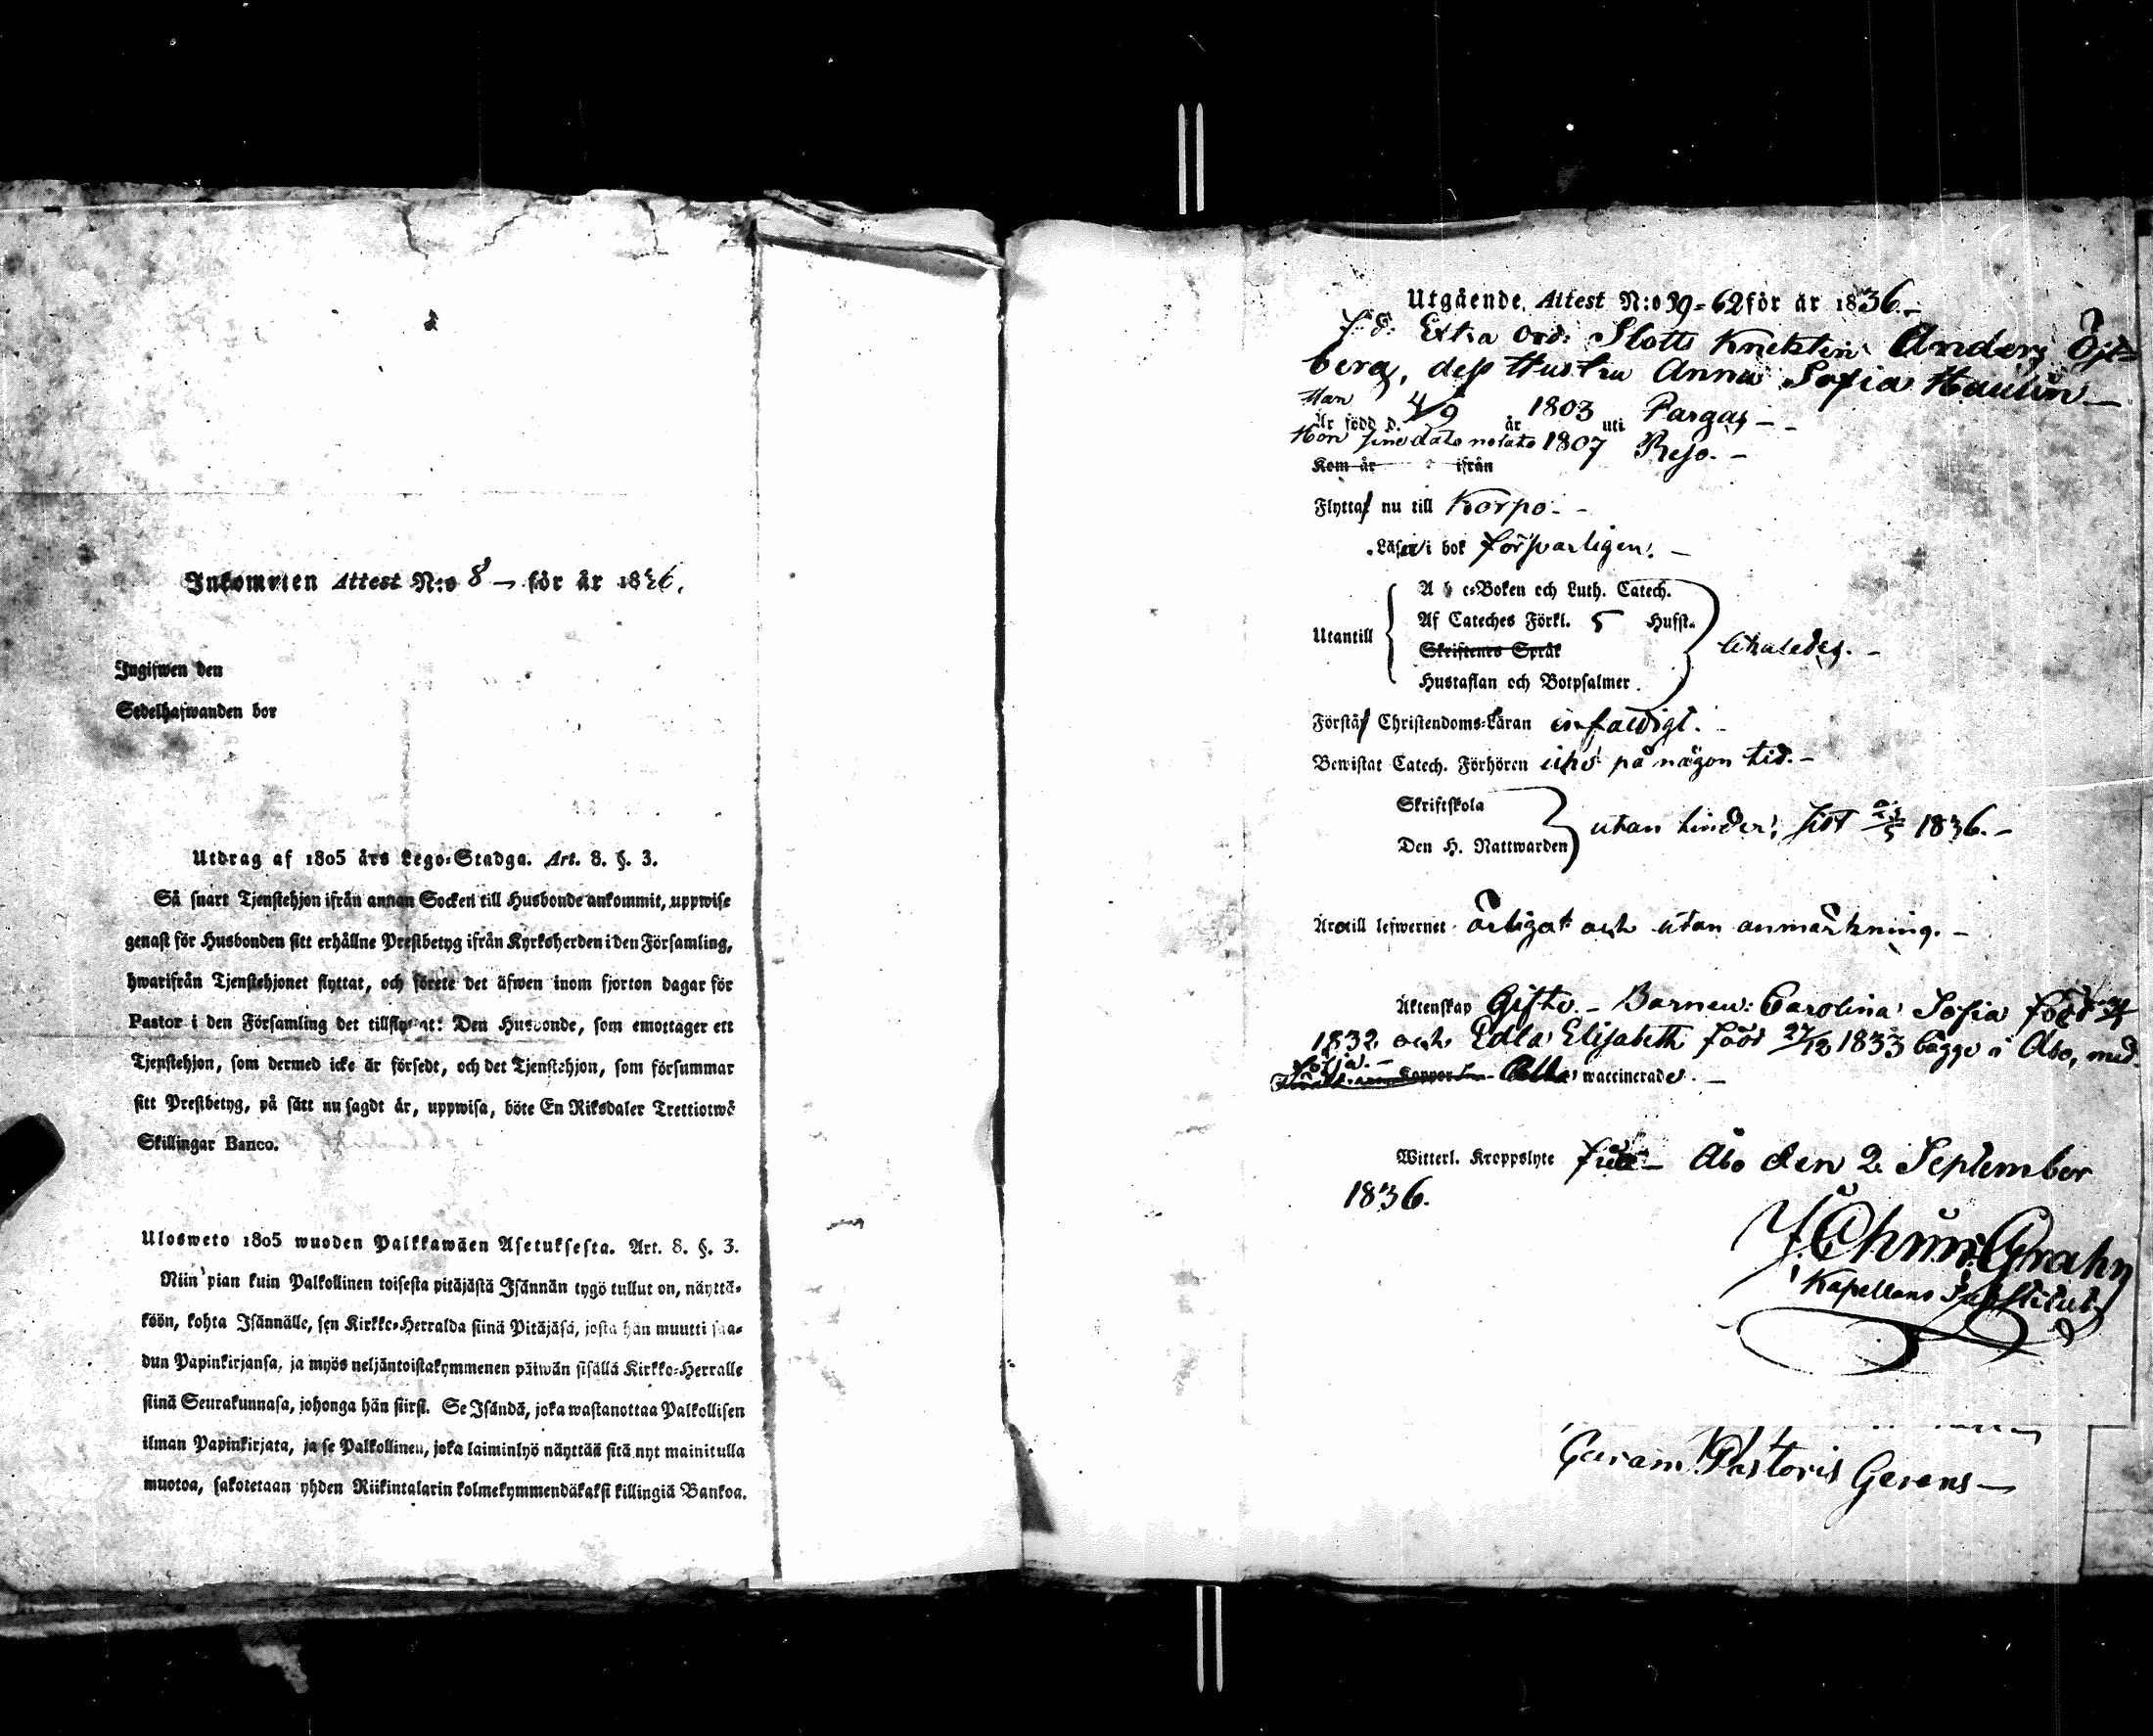 Inkommen Attest N:o 8 — för år 1836.
Ingifwen den
Sedelhafwanden bor
Utdrag af 1805 års Lego-Stadga. Art. 8. §. 3.
Så snart Tjenstehjon ifrån annan Socken till Husbonde ankommit, uppwise
genast för Husbonden sitt erhållne Prestbetyg ifrån Kyrkoherden i den Församling,
hwarifrån Tjenstehjonet flyttat, och förete det äfwen inom fjorton dagar för
Pastor i den Församling det tillflyttat: Den Husbonde, som emottager ett
Tjenstehjon, som dermed icke är försedt, och det Tjenstehjon, som försummar
sitt Prestbetyg, på sätt nu sagdt är, uppwisa, böte En Riksdaler Trettiotwå
Skillingar Banco.
Ulosweto 1805 wuoden Palkkawäen Asetuksesta. Art. 8. §. 3.
Niin pian kuin Palkollinen toisesta pitäjästä Isännän tygö tullut on, näyttä-
köön, kohta Isännälle, sen Kirkko-Herralda siinä Pitäjäsä, josta hän muutti saa-
dun Papinkirjansa, ja myös neljäntoistakymmenen päiwän sisällä Kirkko-Herralle
siinä Seurakunnasa, johonga hän siirst. Se Isändä, joka wastanottaa Palkollisen
ilman Papinkirjata, ja se Palkollinen, joka laiminlyö näyttää sitä nyt mainitulla
muotoa, sakotetaan yhden Riikintalarin kolmekymmendäkaksi killingiä Bankoa.
Utgående Attest N:o 39-62 för år 1836.-
f.d. Extra ord: Slotts Knekten Anders Öst=
berg, dess Hustru Anna Sofia Haulin —
Han
Är född d. 4/9 år 1803 uti Pargas --
Hon sine dato notato 1807 Reso. -
Kom år ifrån
Flytta nu till Korpo. -
Läser i bok försvarligen. —
A b c-Boken och Luth. Catech.
Utantill Af Cateches Förkl. 5 Hufst. likaledes. -
Skriftenes Språk
Hustaflan och Botpsalmer
Förstå Christendoms-Läran enfaldigt. -
Bewistat Catech. Förhören icke på någon tid. -
Skriftskola
utan hinder, sist 1836. -
Den H. Nattwarden
Ära till lefwernet ärligat och utan anmärkning. -
Äktenskap Gifte. - Barnen: Carolina Sofia född
1832 och Edla Elisabeth född 27/12 1833 bägge i Åbo, med-
följa. -
Koppor Alla waccinerade. —
Witterl. Kroppslyte frie - Åbo den 2 September
1836.
Grahn
Kapellans Substitut
Curam Pastoris Gerens —